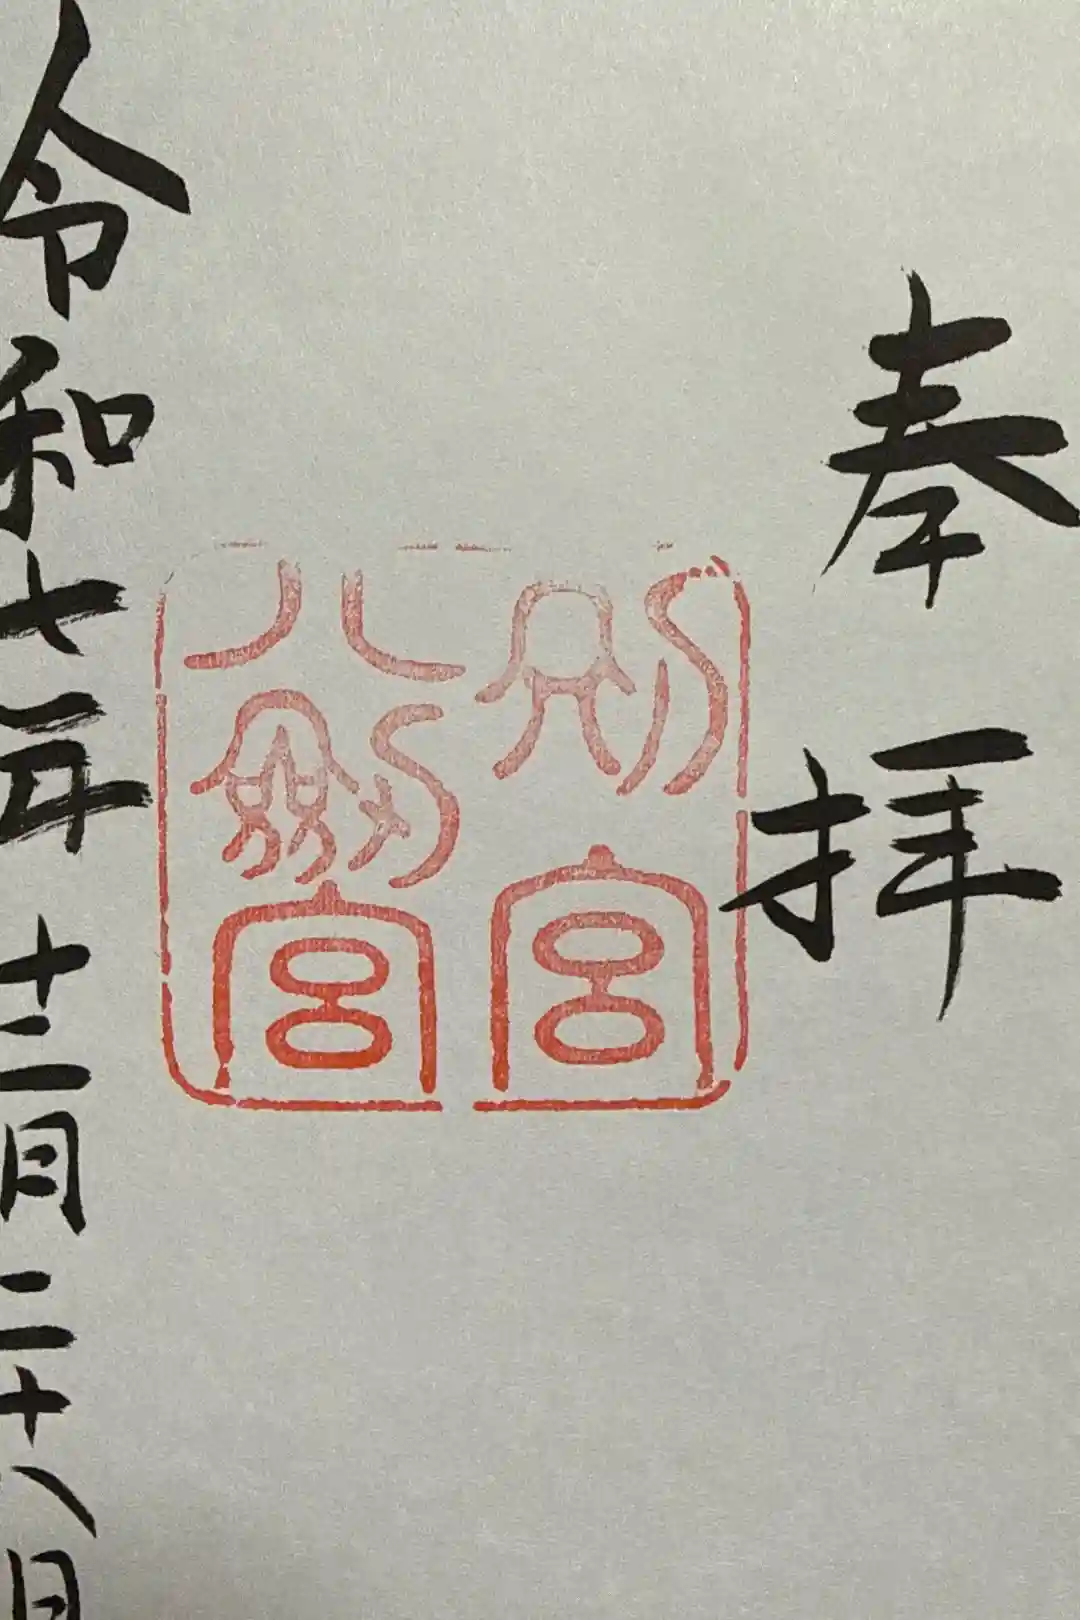 奉拝
別宮
八劔宮
令和七年十二月二十八日